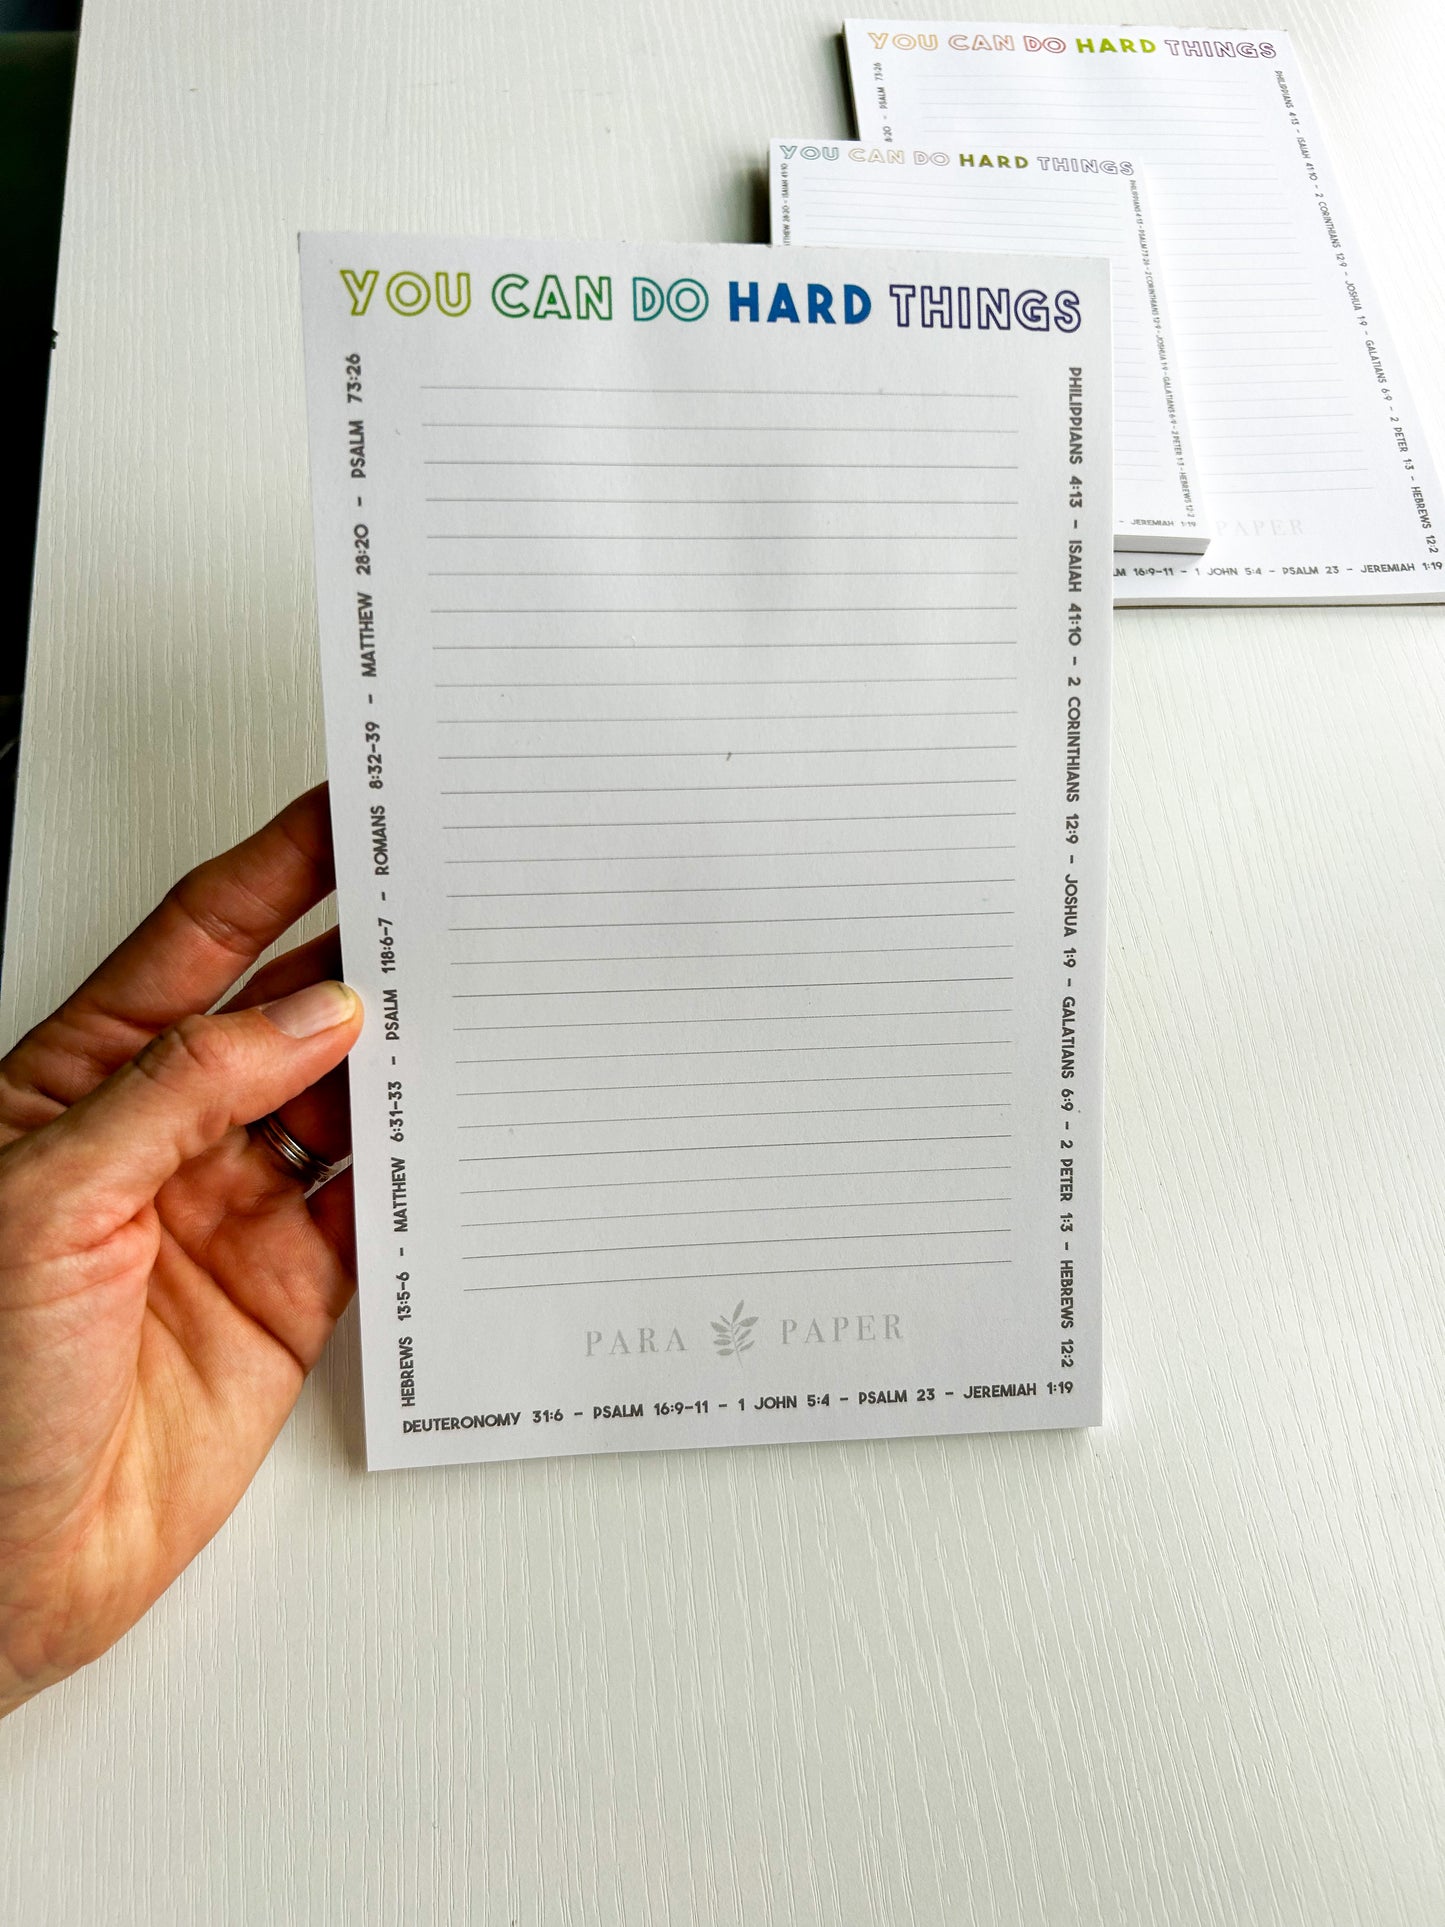 YOU CAN DO HARD THINGS
PHILIPPIANS 4:13 - ISAIAH 41:10 - 2 CORINTHIANS 12:9 - JOSHUA 1:9 - GALATIANS 6:9 - 2 PETER 1:3 - HEBREWS 12:2
DEUTERONOMY 31:6 - PSALM 16:9-11 - 1 JOHN 5:4 - PSALM 23 - JEREMIAH 1:19
HEBREWS 13:5-6 - MATTHEW 6:31-33 - PSALM 118:6-7 - ROMANS 8:32-39 - MATTHEW 28:20 - PSALM 73:26
PARA PAPER
YOU CAN DO HARD THINGS
28:20 - ISAIAH 41:10
PHILIPPIANS 4:13 - PSALM 73:26 - 2 CORINTHIANS 12:9 - JOSHUA 1:9 - GALATIANS 6:9 - 2 PETER 1:3 - HEBREWS 12:2
- JEREMIAH 1:19
YOU CAN DO HARD THINGS
8:20 - PSALM 73:26
PHILIPPIANS 4:13 - ISAIAH 41:10 - 2 CORINTHIANS 12:9 - JOSHUA 1:9 - GALATIANS 6:9 - 2 PETER 1:3 - HEBREWS 12:2
PAPER
LM 16:9-11 - 1 JOHN 5:4 - PSALM 23 - JEREMIAH 1:19